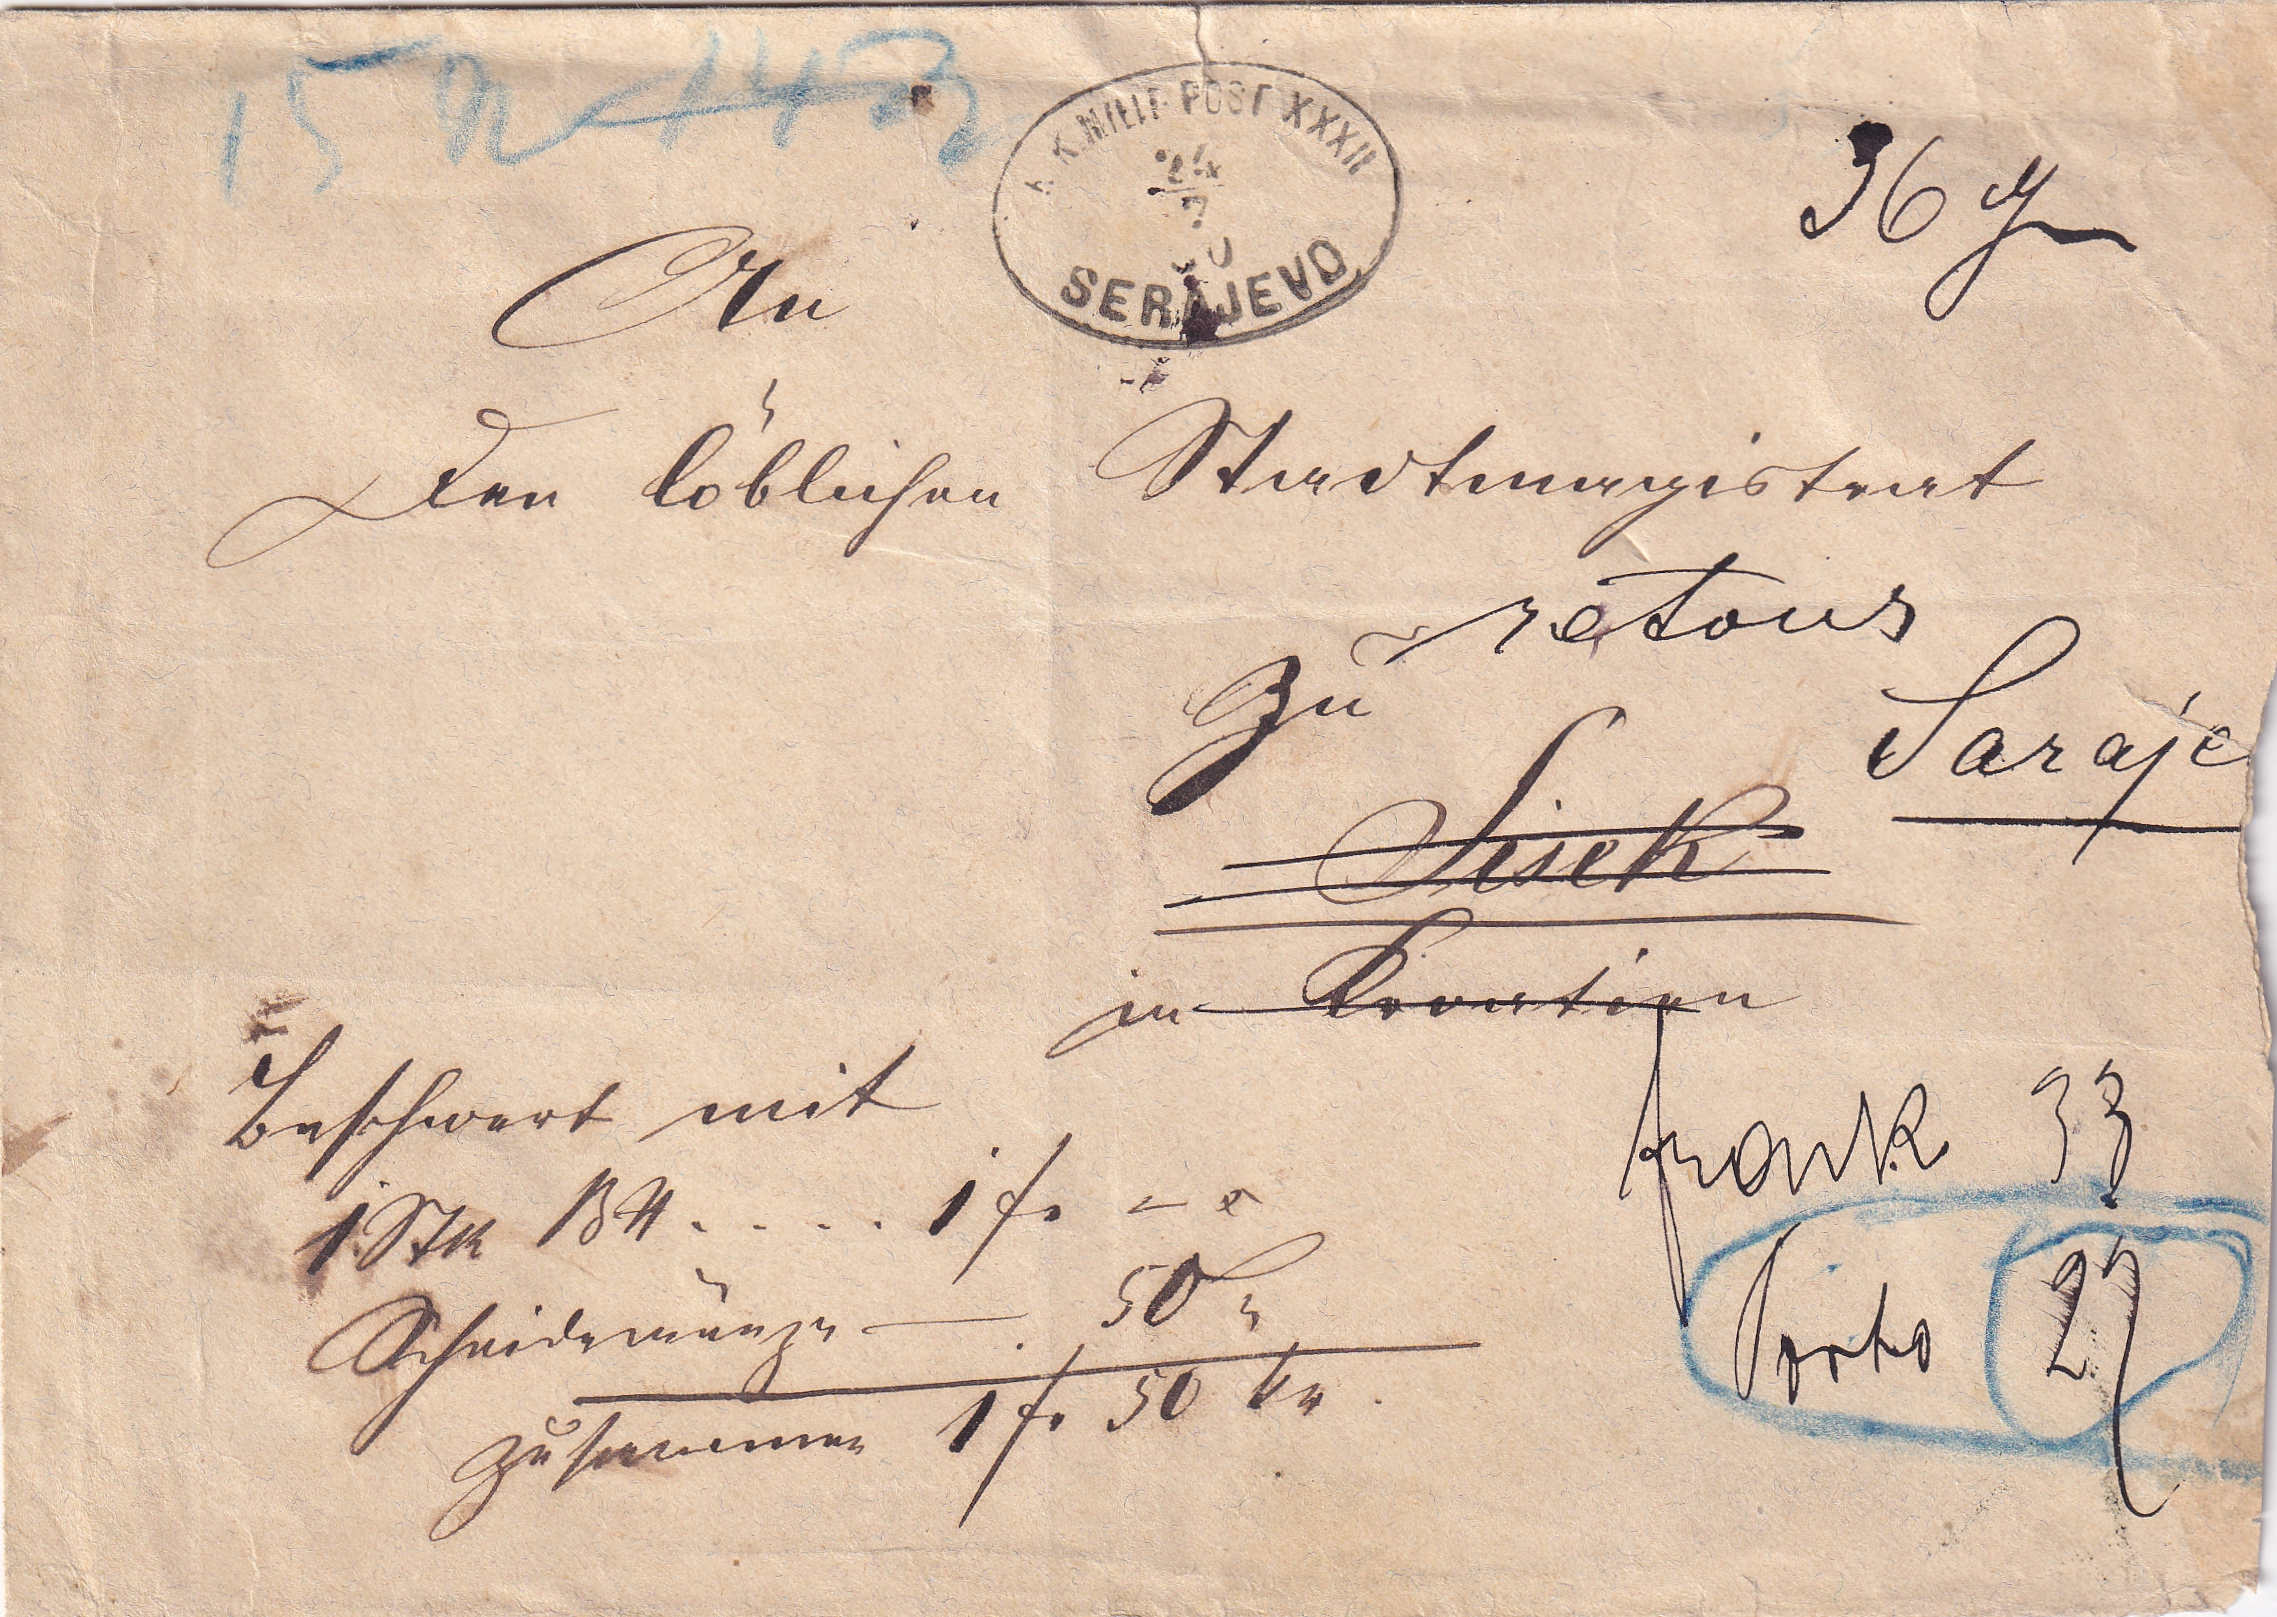 K.K.MILIT-POST XXXII
24
7
SERAJEVO
36 g
An
den löblichen Stadtmagistrat
retour
Zu
Saraje
Sisek
in Kroatien
Beschwert mit
1 Stk BN . . . . 1 f. –
Scheidemünze — 50 "
zusammen 1 f. 50 kr.
frank 33
Porto 27